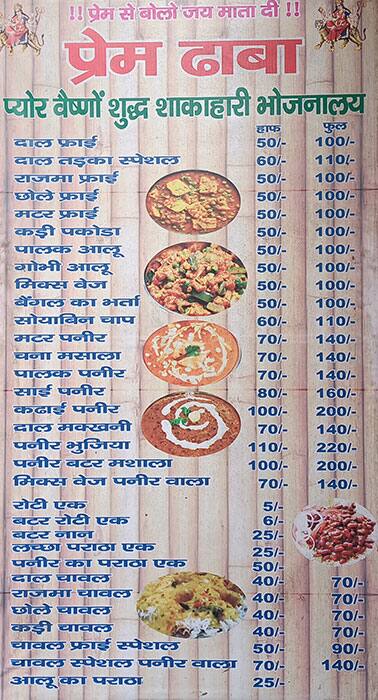 !! प्रेम से बोलो जय माता दी !!
प्रेम ढाबा
प्योर वैष्णों शुद्ध शाकाहारी भोजनालय
हाफ फुल
दाल फ्राई 50/- 100/-
दाल तड़का स्पेशल 60/- 110/-
राजमा फ्राई 50/- 100/-
छोले फ्राई 50/- 100/-
मटर फ्राई 50/- 100/-
कड़ी पकोडा 50/- 100/-
पालक आलू 50/- 100/-
गोभी आलू 50/- 100/-
मिक्स वेज 50/- 100/-
बैंगल का भर्ता 50/- 100/-
सोयाबिन चाप 60/- 110/-
मटर पनीर 70/- 140/-
चना मसाला 70/- 140/-
पालक पनीर 70/- 140/-
साई पनीर 80/- 160/-
कढाई पनीर 100/- 200/-
दाल मक्खनी 70/- 140/-
पनीर भुजिया 110/- 220/-
पनीर बटर मशाला 100/- 200/-
मिक्स वेज पनीर वाला 70/- 140/-
रोटी एक 5/-
बटर रोटी एक 6/-
बटर नान 25/-
लच्छा पराठा एक 25/-
पनीर का पराठा एक 50/-
दाल चावल 40/- 70/-
राजमा चावल 40/- 70/-
छोले चावल 40/- 70/-
कड़ी चावल 40/- 70/-
चावल फ्राई स्पेशल 50/- 90/-
चावल स्पेशल पनीर वाला 70/- 140/-
आलू का पराठा 25/-